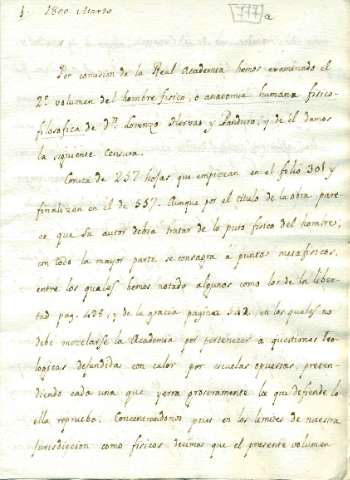 1800 Marzo
777 a
Por comision de la Real Academia hemos examinado el
2º volumen del hombre fisico, o anatomia humana fisico-
filosofica de Dn. Lorenzo Hervas y Panduro, y de él damos
la siguiente censura.
Consta de 257 hojas que empiezan en el folio 301 y
finalizan en el de 557. Aunque por el titulo de la obra pare-
ce que su autor debia tratar de lo puro fisico del hombre,
con todo la mayor parte se consagra à puntos metafisicos,
entre los quales hemos notado algunos como los de la liber-
tad pag. 438, y de la gracia pagina 542, en las quales no
debe mezclarse la Academia por pertenecer a questiones teo-
logicas defendidas con calor por escuelas opuestas, preten-
diendo cada una que yerra groseramente la que defiende lo
ella reprueba. Concretandonos pues en los limites de nuestra
jurisdiccion como fisicos decimos que el presente volumen